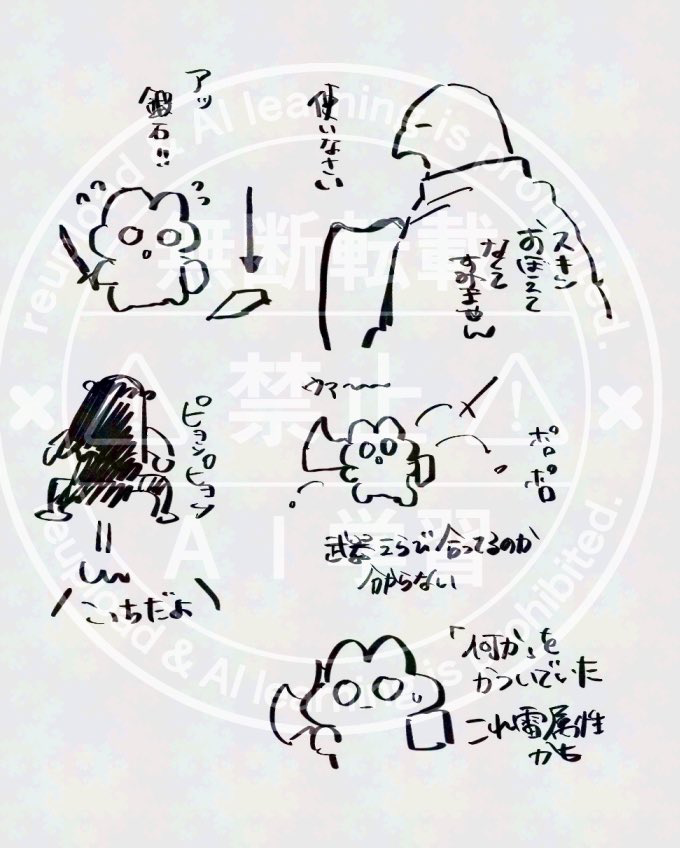 アッ
鍛石!!
使いなさい
スキン
おぼえて
なくて
すみません
ピョンピョン
こっちだよ
ウマ〜
ポロ
ポロ
武器えらび合ってるのか
分からない
「何か」を
かついでいた
これ雷属性
かも
reupload & AI learning is prohibited.
無断転載
禁止
AI学習
reupload & AI learning is prohibited.